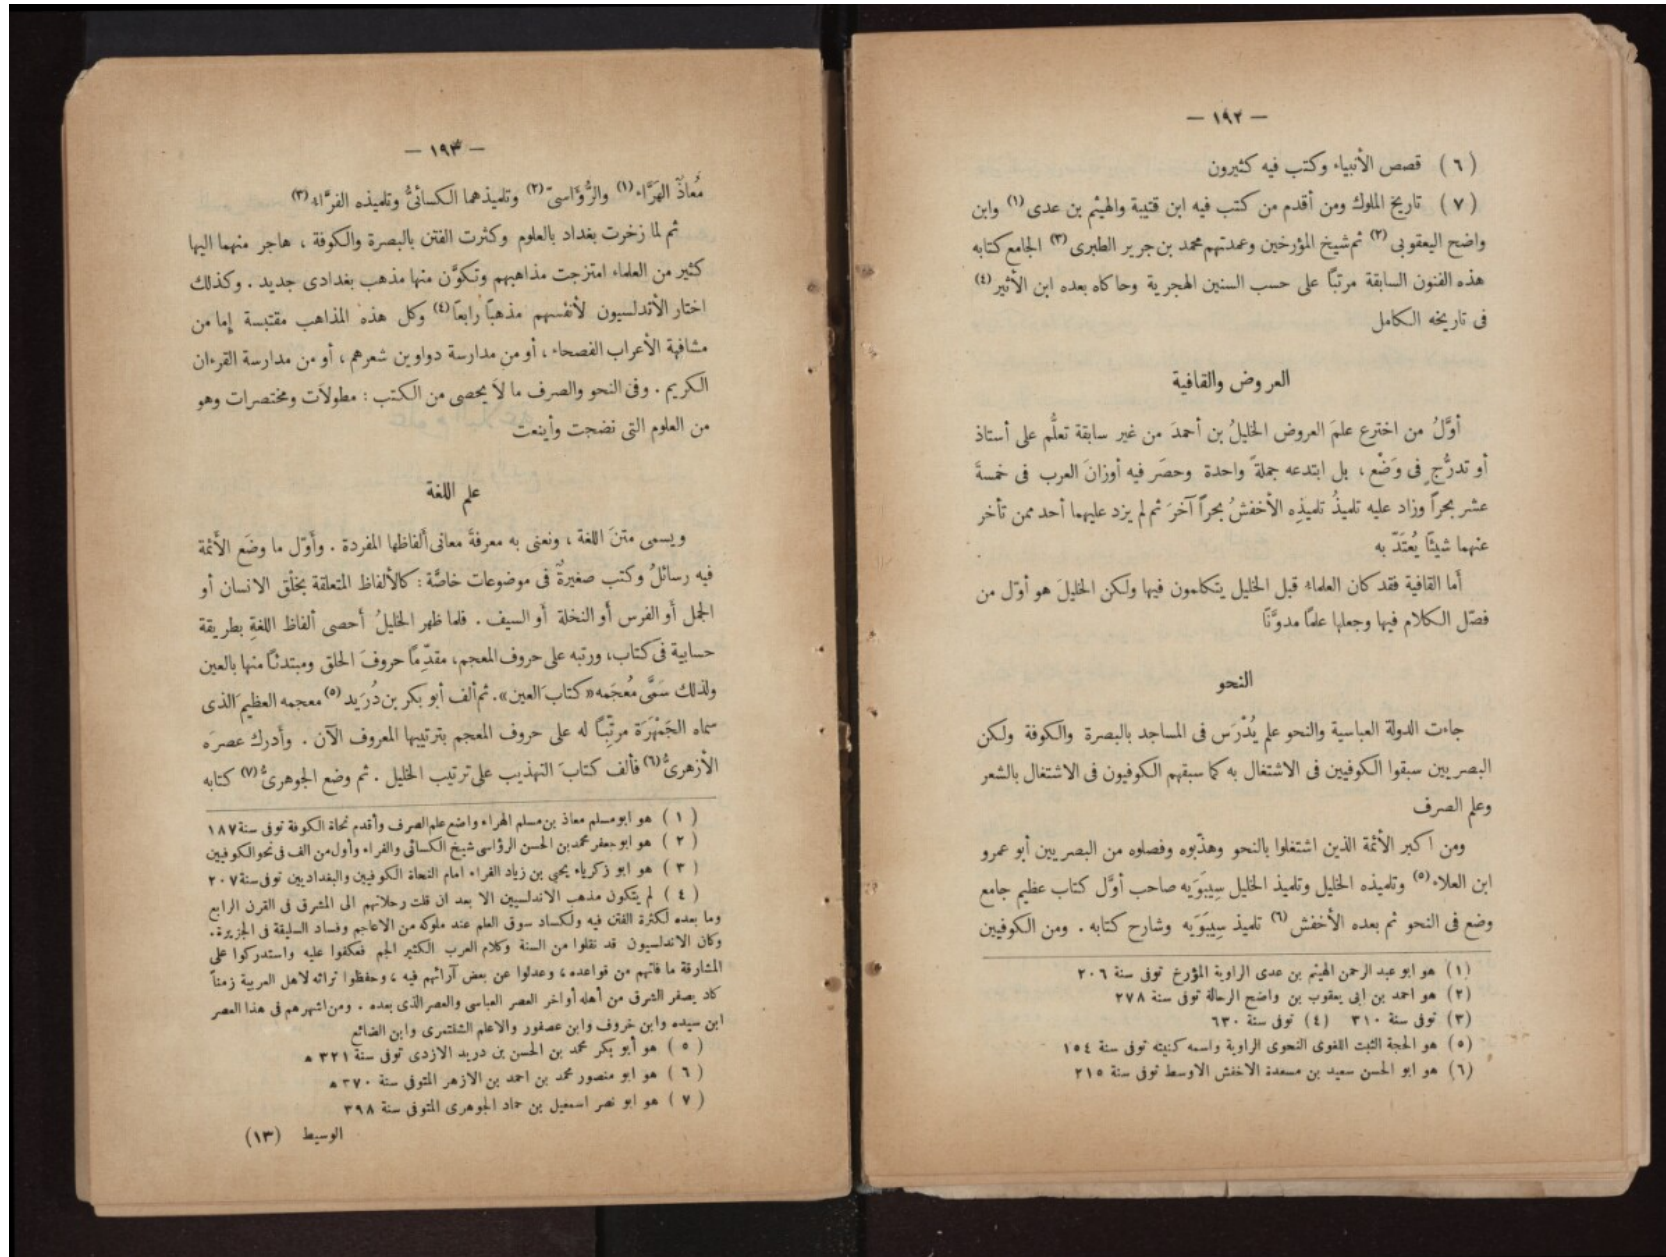 — ١٩٢ —
( ٦ ) قصص الأنبياء وكتب فيه كثيرون
( ٧ ) تاريخ الملوك ومن أقدم من كتب فيه ابن قتيبة والهيثم بن عدى (١) وابن
واضح اليعقوبى (٢) ثم شيخ المؤرخين وعمدتهم محمد بن جرير الطبرى (٣) الجامع كتابه
هذه الفنون السابقة مرتبًا على حسب السنين الهجرية وحاكاه بعده ابن الأثير (٤)
فى تاريخه الكامل
العروض والقافية
أوَّلُ من اخترع علمَ العروض الخليلُ بن أحمدَ من غير سابقة تعلُّم على أستاذ
أو تدرُّجٍ فى وَضْع ، بل ابتدعه جملةً واحدة وحصَر فيه أوزانَ العرب فى خمسةَ
عشر بحراً وزاد عليه تلميذُ تلميذِه الأخفشُ بحراً آخرَ ثم لم يزد عليهما أحد ممن تأخر
عنهما شيئًا يُعتَدّ به
أما القافية فقد كان العلماء قبل الخليل يتكلمون فيها ولكن الخليلَ هو أوّل من
فصّل الكلام فيها وجعلها علمًا مدوَّنًا
النحو
جاءت الدولة العباسية والنحو علم يُدْرَس فى المساجد بالبصرة والكوفة ولكن
البصريين سبقوا الكوفيين فى الاشتغال به كما سبقهم الكوفيون فى الاشتغال بالشعر
وعلم الصرف
ومن اكبر الأئمة الذين اشتغلوا بالنحو وهذّبوه وفصلوه من البصريين أبو عمرو
ابن العلاء (٥) وتلميذه الخليل وتلميذ الخليل سِيبَوَيه صاحب أوَّل كتاب عظيم جامع
وضع فى النحو ثم بعده الأخفش (٦) تلميذ سِيبَوَيه وشارح كتابه . ومن الكوفيين
(١) هو ابو عبد الرحمن الهيثم بن عدى الراوية المؤرخ توفى سنة ٢٠٦
(٢) هو احمد بن ابى يعقوب بن واضح الرحالة توفى سنة ٢٧٨
(٣) توفى سنة ٣١٠ (٤) توفى سنة ٦٣٠
(٥) هو الحجة الثبت اللغوى النحوى الراوية واسمه كنيته توفى سنة ١٥٤
(٦) هو ابو الحسن سعيد بن مسعدة الاخفش الاوسط توفى سنة ٢١٥
— ١٩٣ —
مُعاذٌ الهَرَّاء (١) والرُّؤَاسىّ (٢) وتلميذهما الكسائىُّ وتلميذه الفرَّاء (٣)
ثم لما زخرت بغداد بالعلوم وكثرت الفتن بالبصرة والكوفة ، هاجر منهما اليها
كثير من العلماء امتزجت مذاهبهم وتكوَّن منها مذهب بغدادى جديد . وكذلك
اختار الأندلسيون لأنفُسهم مذهباً رابعاً (٤) وكل هذه المذاهب مقتبسة إما من
مشافهة الأعراب الفصحاء ، أو من مدارسة دواوين شعرهم ، أو من مدارسة القرءان
الكريم . وفى النحو والصرف ما لاَ يحصى من الكتب : مطولات ومختصرات وهو
من العلوم التى نضجت وأينعت
علم اللغة
ويسمى متنَ اللغة ، ونعنى به معرفةَ معانى ألفاظها المفردة . وأوّل ما وضَع الأئمة
فيه رسائلُ وكتب صغيرةٌ فى موضوعات خاصَّة : كالألفاظ المتعلقة بخلْق الانسان أو
الجمل أو الفرس أو النخلة أو السيف . فلما ظهر الخليلُ أحصى ألفاظ اللغةِ بطريقة
حسابية فى كتاب، ورتبه على حروف المعجم، مقدِّمًا حروفَ الحلق ومبتدئًا منها بالعين
ولذلك سَمَّى مُعجَمه «كتابَ العين». ثم ألف أبو بكر بن دُرَيد (٥) معجمه العظيم الذى
سماه الجَمْهَرَة مرتِّبًا له على حروف المعجم بترتيبها المعروف الآن . وأدرك عصرَه
الأزهرىُّ (٦) فألف كتابَ التهذيب على ترتيب الخليل . ثم وضع الجوهرىُّ (٧) كتابه
( ١ ) هو ابومسلم معاذ بن مسلم الهراء واضع علم الصرف وأقدم نحاة الكوفة توفى سنة ١٨٧
( ٢ ) هو ابوجعفر محمد بن الحسن الرؤاسى شيخ الكسائى والفراء وأول من الف فى نحو الكوفيين
( ٣ ) هو ابو زكرياء يحيى بن زياد الفراء امام النحاة الكوفيين والبغداديين توفى سنة ٢٠٧
( ٤ ) لم يتكون مذهب الاندلسيين الا بعد ان قلت رحلاتهم الى المشرق فى القرن الرابع
وما بعده لكثرة الفتن فيه ولكساد سوق العلم عند ملوكه من الاعاجم وفساد السليقة فى الجزيرة.
وكان الاندلسيون قد نقلوا من السنة وكلام العرب الكثير الجم فعكفوا عليه واستدركوا على
المشارقة ما فاتهم من قواعده ، وعدلوا عن بعض آرائهم فيه ، وحفظوا تراثه لاهل العربية زمناً
كاد يصفر الشرق من أهله أواخر العصر العباسى والعصر الذى بعده . ومن اشهرهم فى هذا العصر
ابن سيده وابن خروف وابن عصفور والاعلم الشنتمرى وابن الضائع
( ٥ ) هو أبو بكر محمد بن الحسن بن دريد الازدى توفى سنة ٣٢١ ه
( ٦ ) هو ابو منصور محمد بن احمد بن الازهر المتوفى سنة ٣٧٠ ه
( ٧ ) هو ابو نصر اسمعيل بن حماد الجوهرى المتوفى سنة ٣٩٨
الوسيط (١٣)